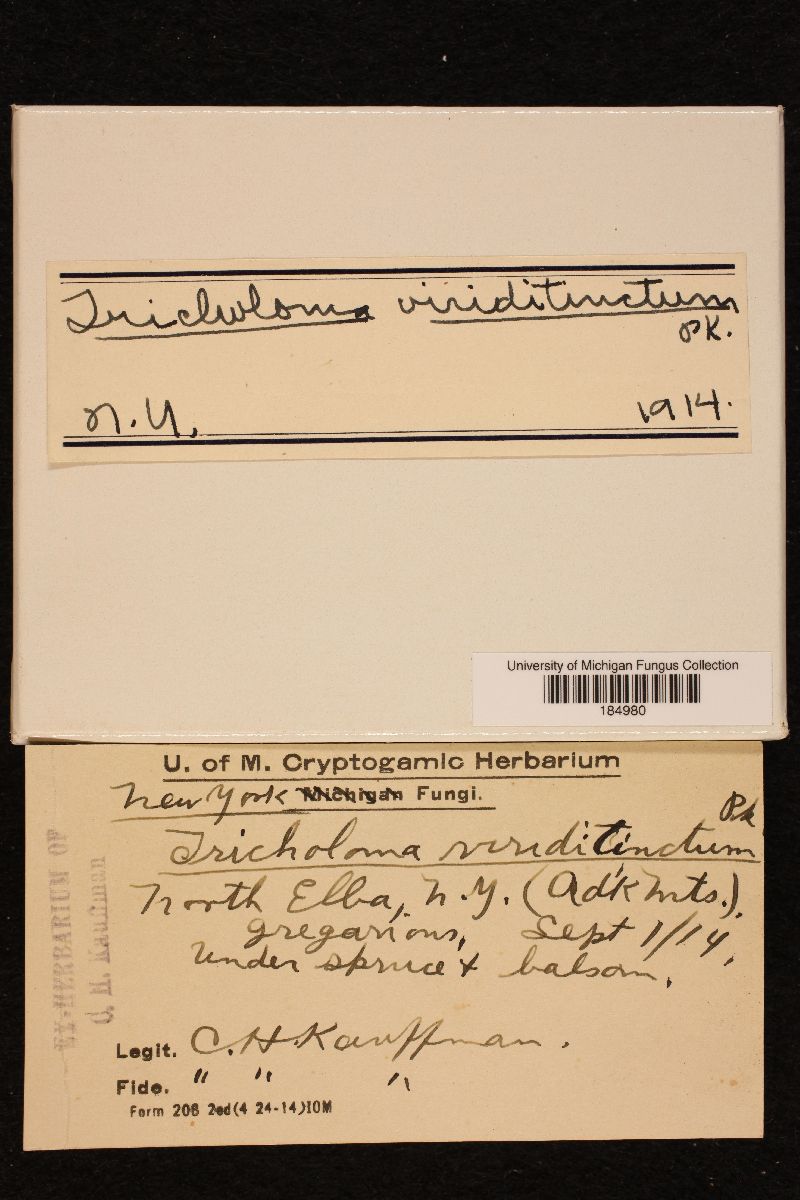 Tricholoma viriditinctum
PK.
N.Y. 1914.
University of Michigan Fungus Collection
184980
U. of M. Cryptogamic Herbarium
New York Michigan Fungi.
Pk
Tricholoma viriditinctum
North Elba, N.Y. (Ad'k Mts.).
Gregarious, Sept 1/14.
Under spruce & balsam.
Legit. C.H. Kauffman.
Fide. " " "
Form 206 2ed(4 24-14)10M
EX-HERBARIUM OF
C. H. Kauffman